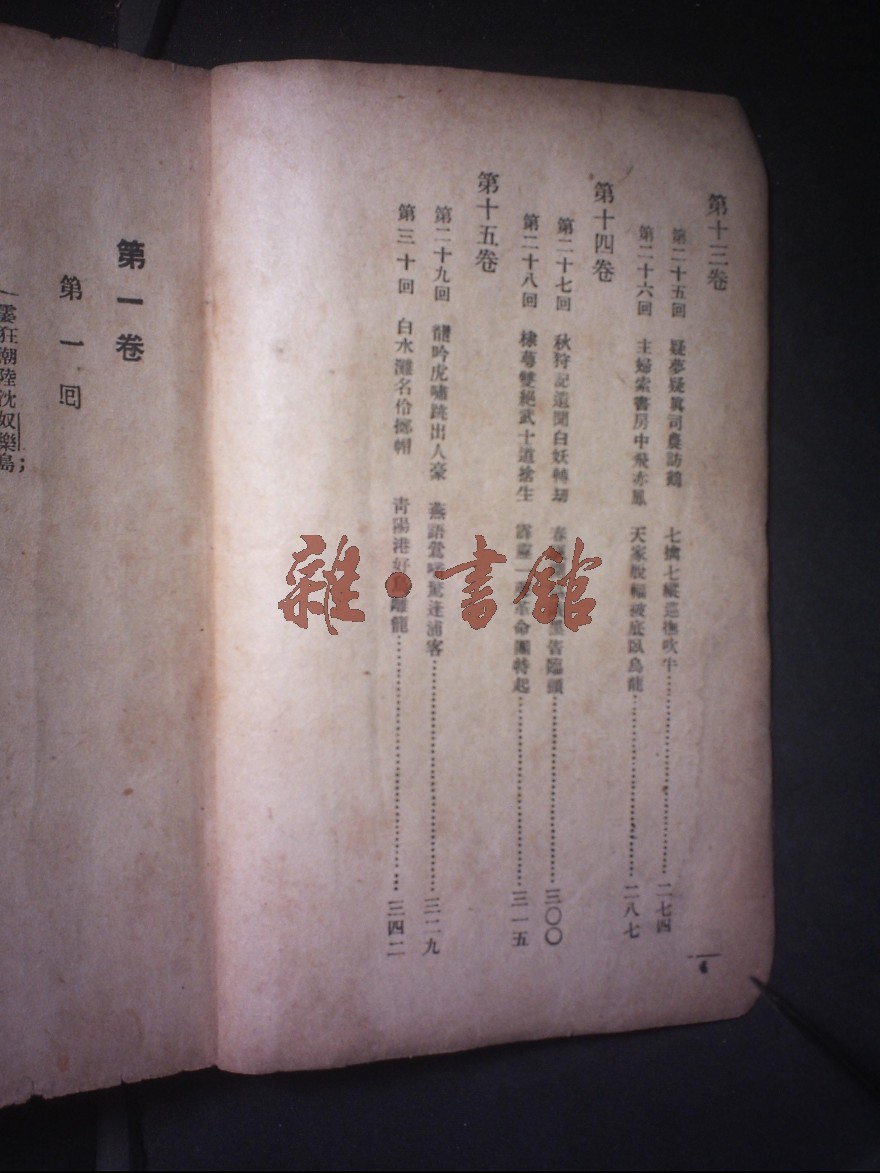 第十三卷
第二十五回 疑夢疑眞司農訪鶴 七擒七縱巡撫吹牛 二七四
第二十六回 主婦索書房中飛赤鳳 天家脫輻被底臥烏龍 二八七
第十四卷
第二十七回 秋狩記遺聞白妖轉劫 春 臨頭 三〇〇
第二十八回 棣萼雙絕武士道捨生 霹靂一 革命團特起 三一五
第十五卷
第二十九回 龍吟虎嘯跳出人豪 燕語鶯啼驚逢浦客 三二九
第三十回 白水灘名伶擲帽 青陽港好鳥離籠 三四二
4
雜·書館
第一卷
第一回
一霎狂潮陸沈奴樂島；